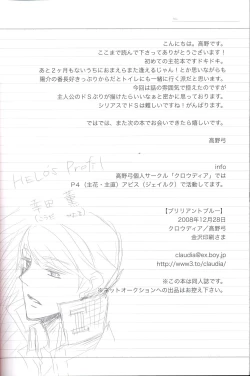 こんにちは。高野です。
ここまで読んで下さってありがとうございます！
初めての主花本ですドキドキ。
あと２ヶ月もないうちにあまえらまた逢えるじゃん！とか思いながらも
陽介の番長好きっぷりからだとトイレにも一緒に行く派だと思います。
今回は話の雰囲気で控えたのですが
主人公のドＳぶりが描けたらいいなぁと密かに思っております。
シリアスでドＳは難しいですね！がんばります。
ではでは、また次の本でお会いできたら嬉しいです。
高野弓
info
高野弓個人サークル「クロウディア」では
Ｐ４（主花・主直）アビス（ジェイルク）で活動してます。
【ブリリアントブルー】
2008年12月28日
クロウディア／高野弓
金沢印刷さま
claudia@ex.boy.jp
http://www3.to/claudia/
※この本は同人誌です。
※ネットオークションへの出品はお控え下さい。